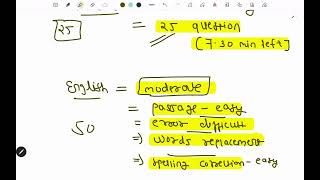 25 = 25 question
[7:30 min left]
English = moderate
= passage - easy
50 = error difficult
=> words replacement
=> spelling correction - easy